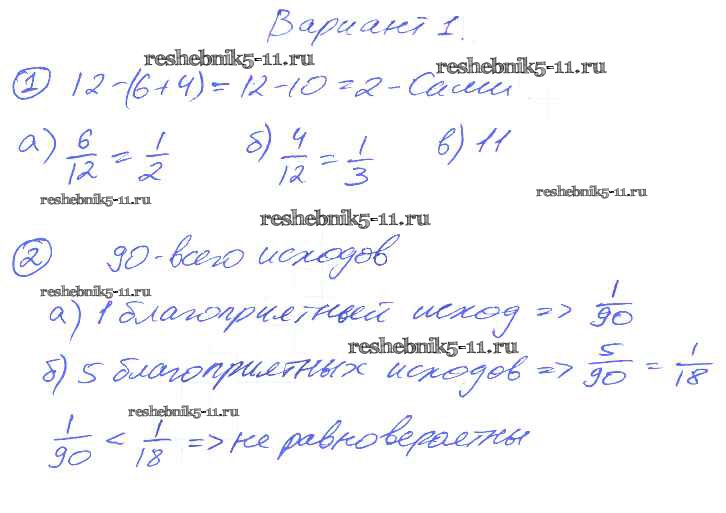 Вариант 1.
reshebnik5-11.ru
reshebnik5-11.ru
① 12-(6+4)=12-10=2-Сами
а) 6/12 = 1/2 б) 4/12 = 1/3 в) 11
reshebnik5-11.ru
reshebnik5-11.ru
reshebnik5-11.ru
② 90-всего исходов
reshebnik5-11.ru
а) 1 благоприятный исход => 1/90
reshebnik5-11.ru
б) 5 благоприятных исходов => 5/90 = 1/18
reshebnik5-11.ru
1/90 < 1/18 => не равновероятны